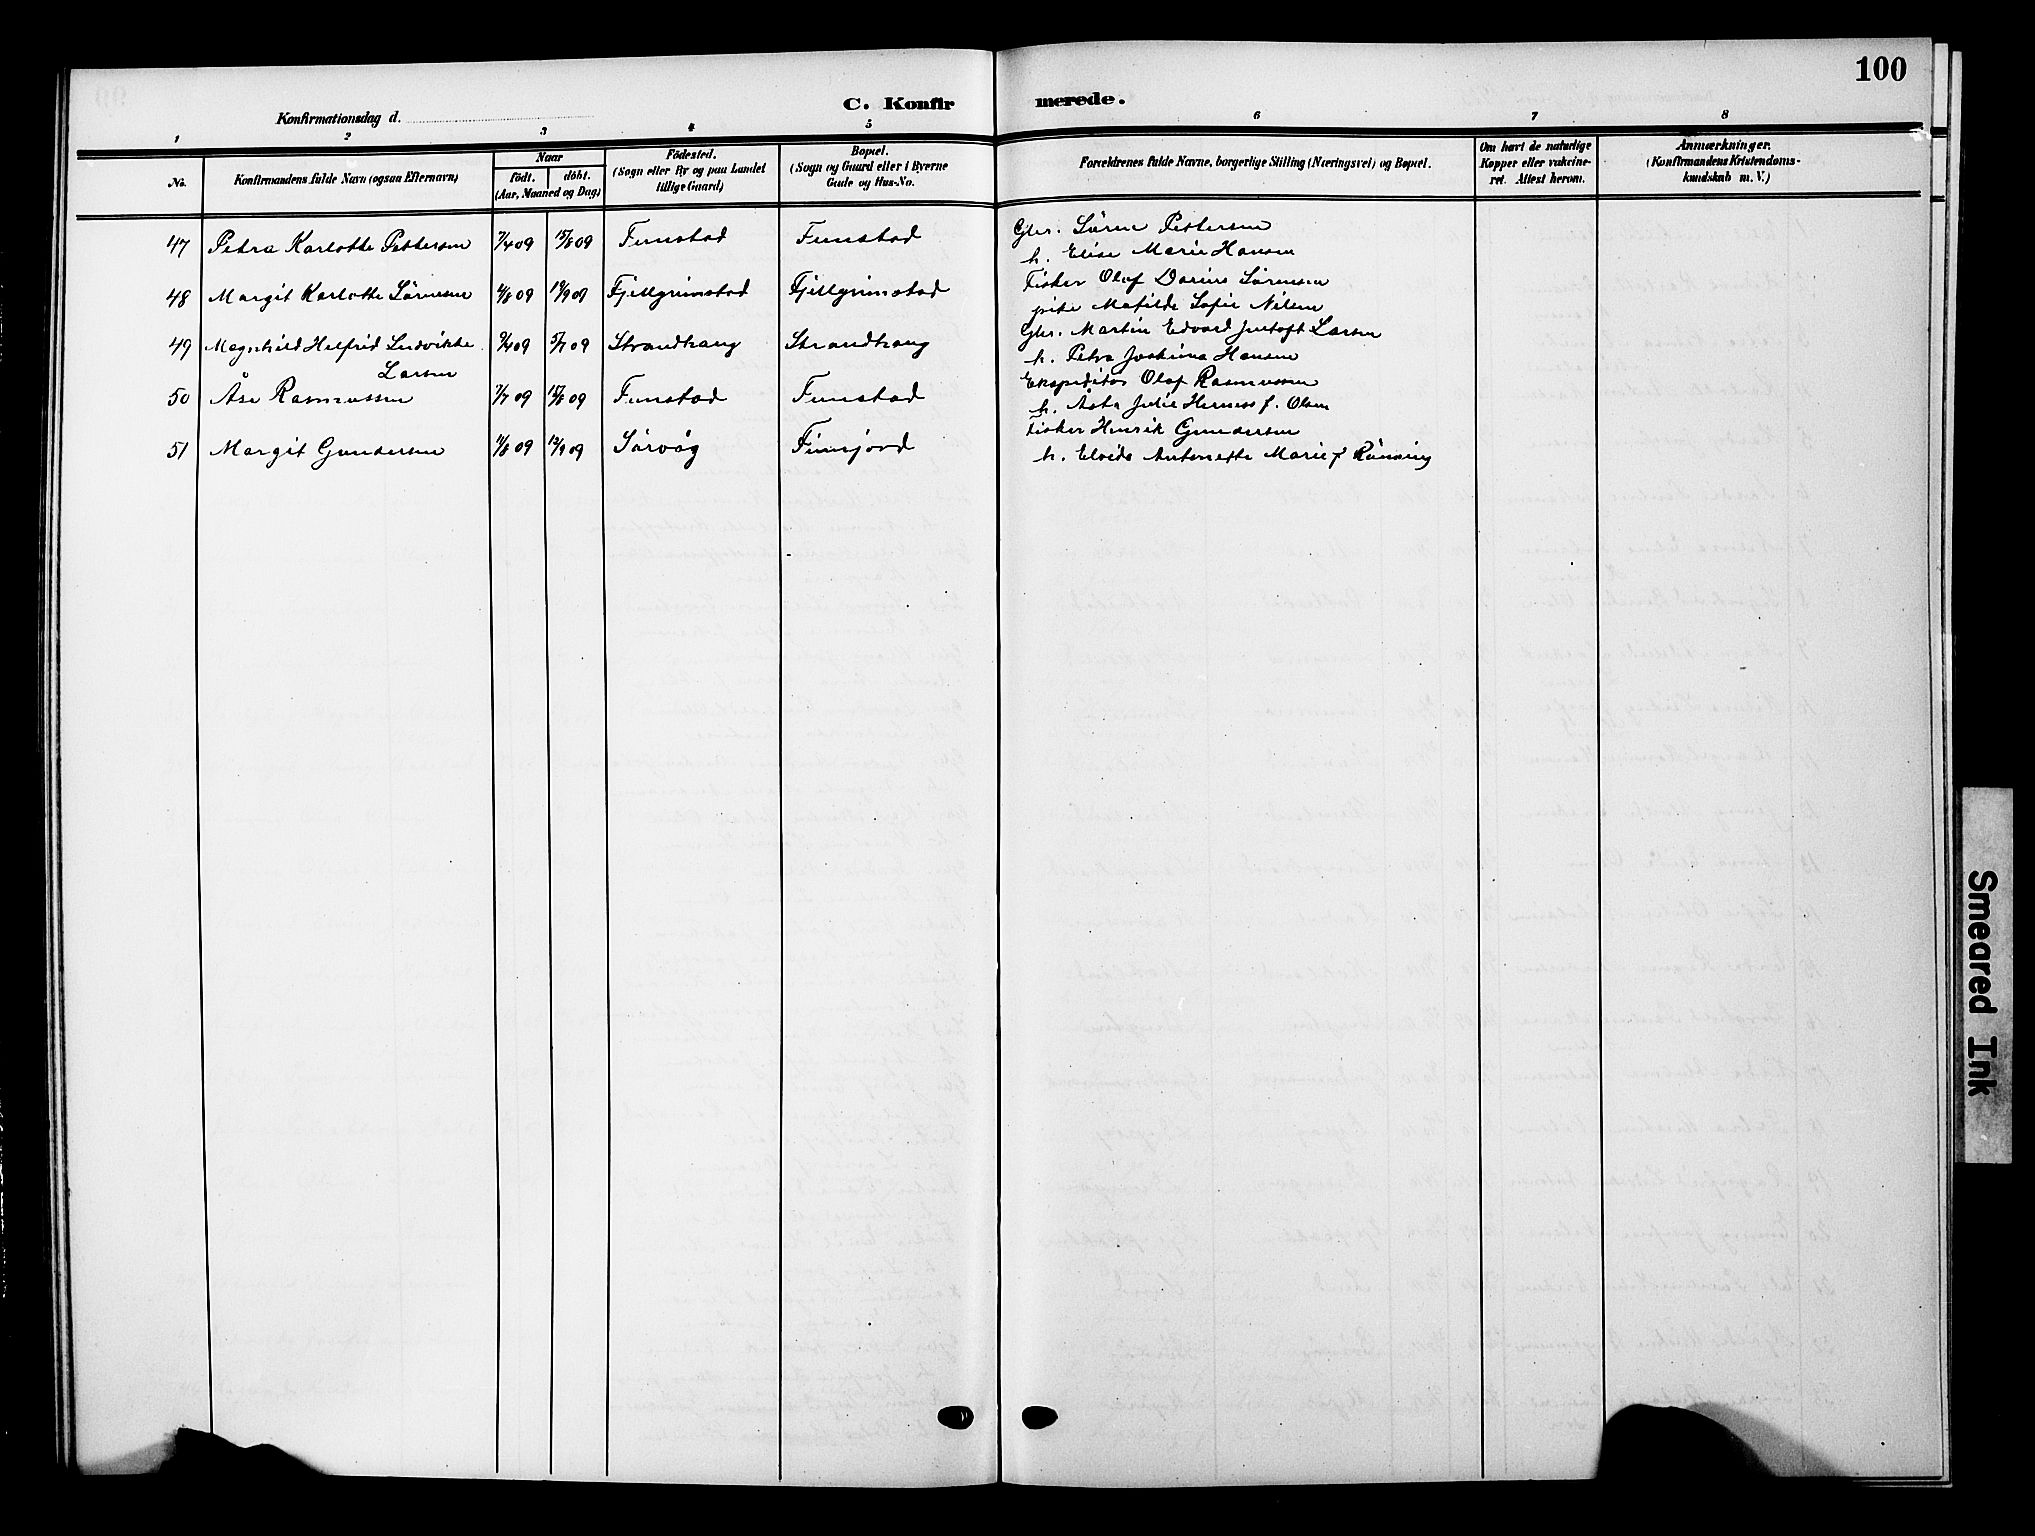 100
C. Konfirmerede.
Konfirmationsdag d.
1 2 3 4 5 6 7 8
No.
Konfirmandens fulde Navn (ogsaa Efternavn)
Naar
födt. döbt.
(Aar, Maaned og Dag)
Födested.
(Sogn eller By og paa Landet
tillige Gaard)
Bopæl.
(Sogn og Gaard eller i Byerne
Gade og Hus-No.
Forældrenes fulde Navne, borgerlige Stilling (Næringsvei) og Bopæl.
Om havt de naturlige
Kopper eller vakcine-
ret. Attest herom.
Anmærkninger.
(Konfirmandens Kristendoms-
kundskab m. V.)
47 Petra Karlotte Pettersen 7/4 09 15/8 09 Finstad Finstad Gbr. Sören Pettersen
h. Elise Marie Hansen
48 Margit Karlotte Sörensen 4/8 09 19/9 09 Fjellgrimstad Fjellgrimstad Fisker Olaf Darius Sörensen
pike Matilde Sofie Nilsen
49 Magnhild Helfrid Ludvikke Strandhaug Strandhaug Gbr. Martin Edvard Jentoft Larsen
Larsen h. Petra Hansen
50 Åse Rasmussen 7/7 09 15/8 09 Finstad Finstad Ekspeditör Olaf Rasmussen
h. Asta Julie f. Olsen
51 Margit Gundersen 11/8 09 12/9 09 Sörvåg Finnjord Fisker Henrik Gundersen
h. Antonette Marie f. Rönning
Smeared Ink